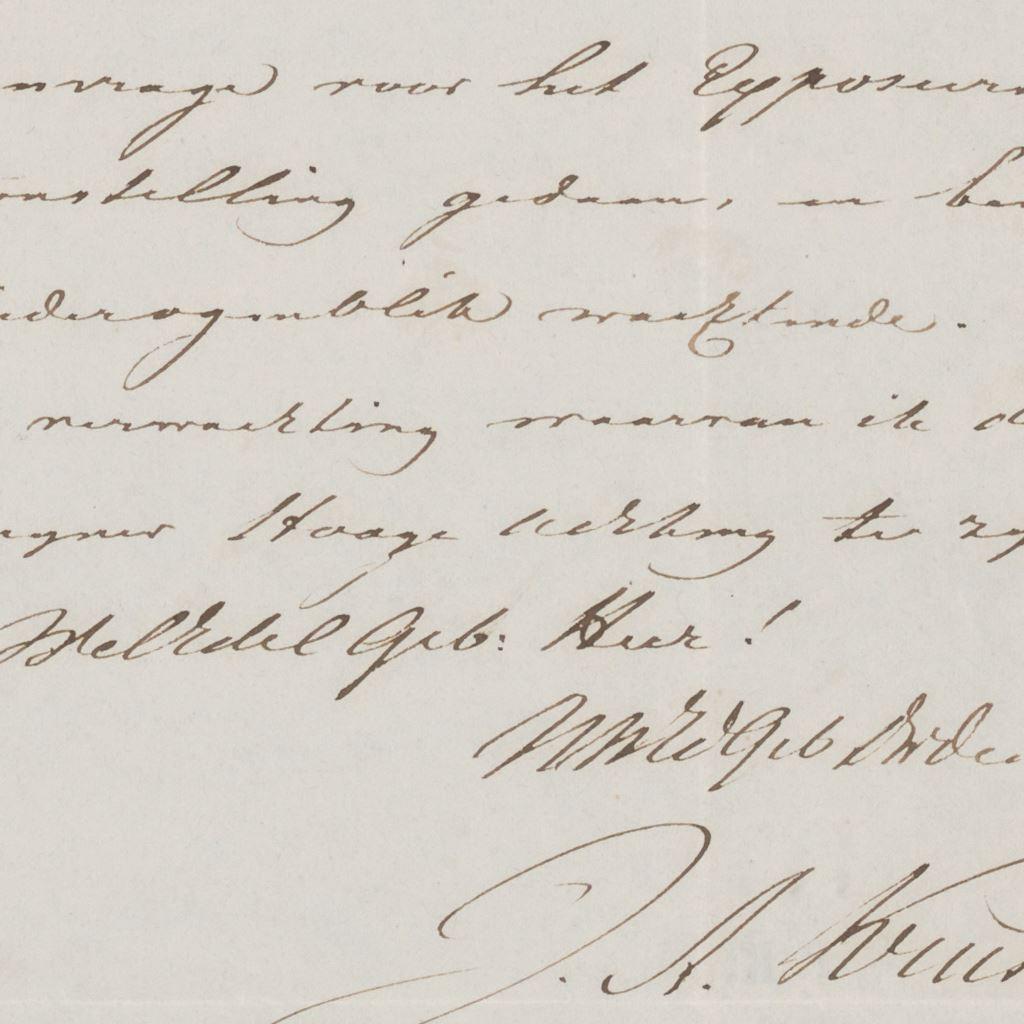 nvrage voor het Expposure
onstelling gedaan, en ben
ider ogenblik wachtende.
verwachting waarvan ik d
Hooge achting te zy
WelEdel Geb: Heer!
UWEdGeb Dwde
J. A. Krus